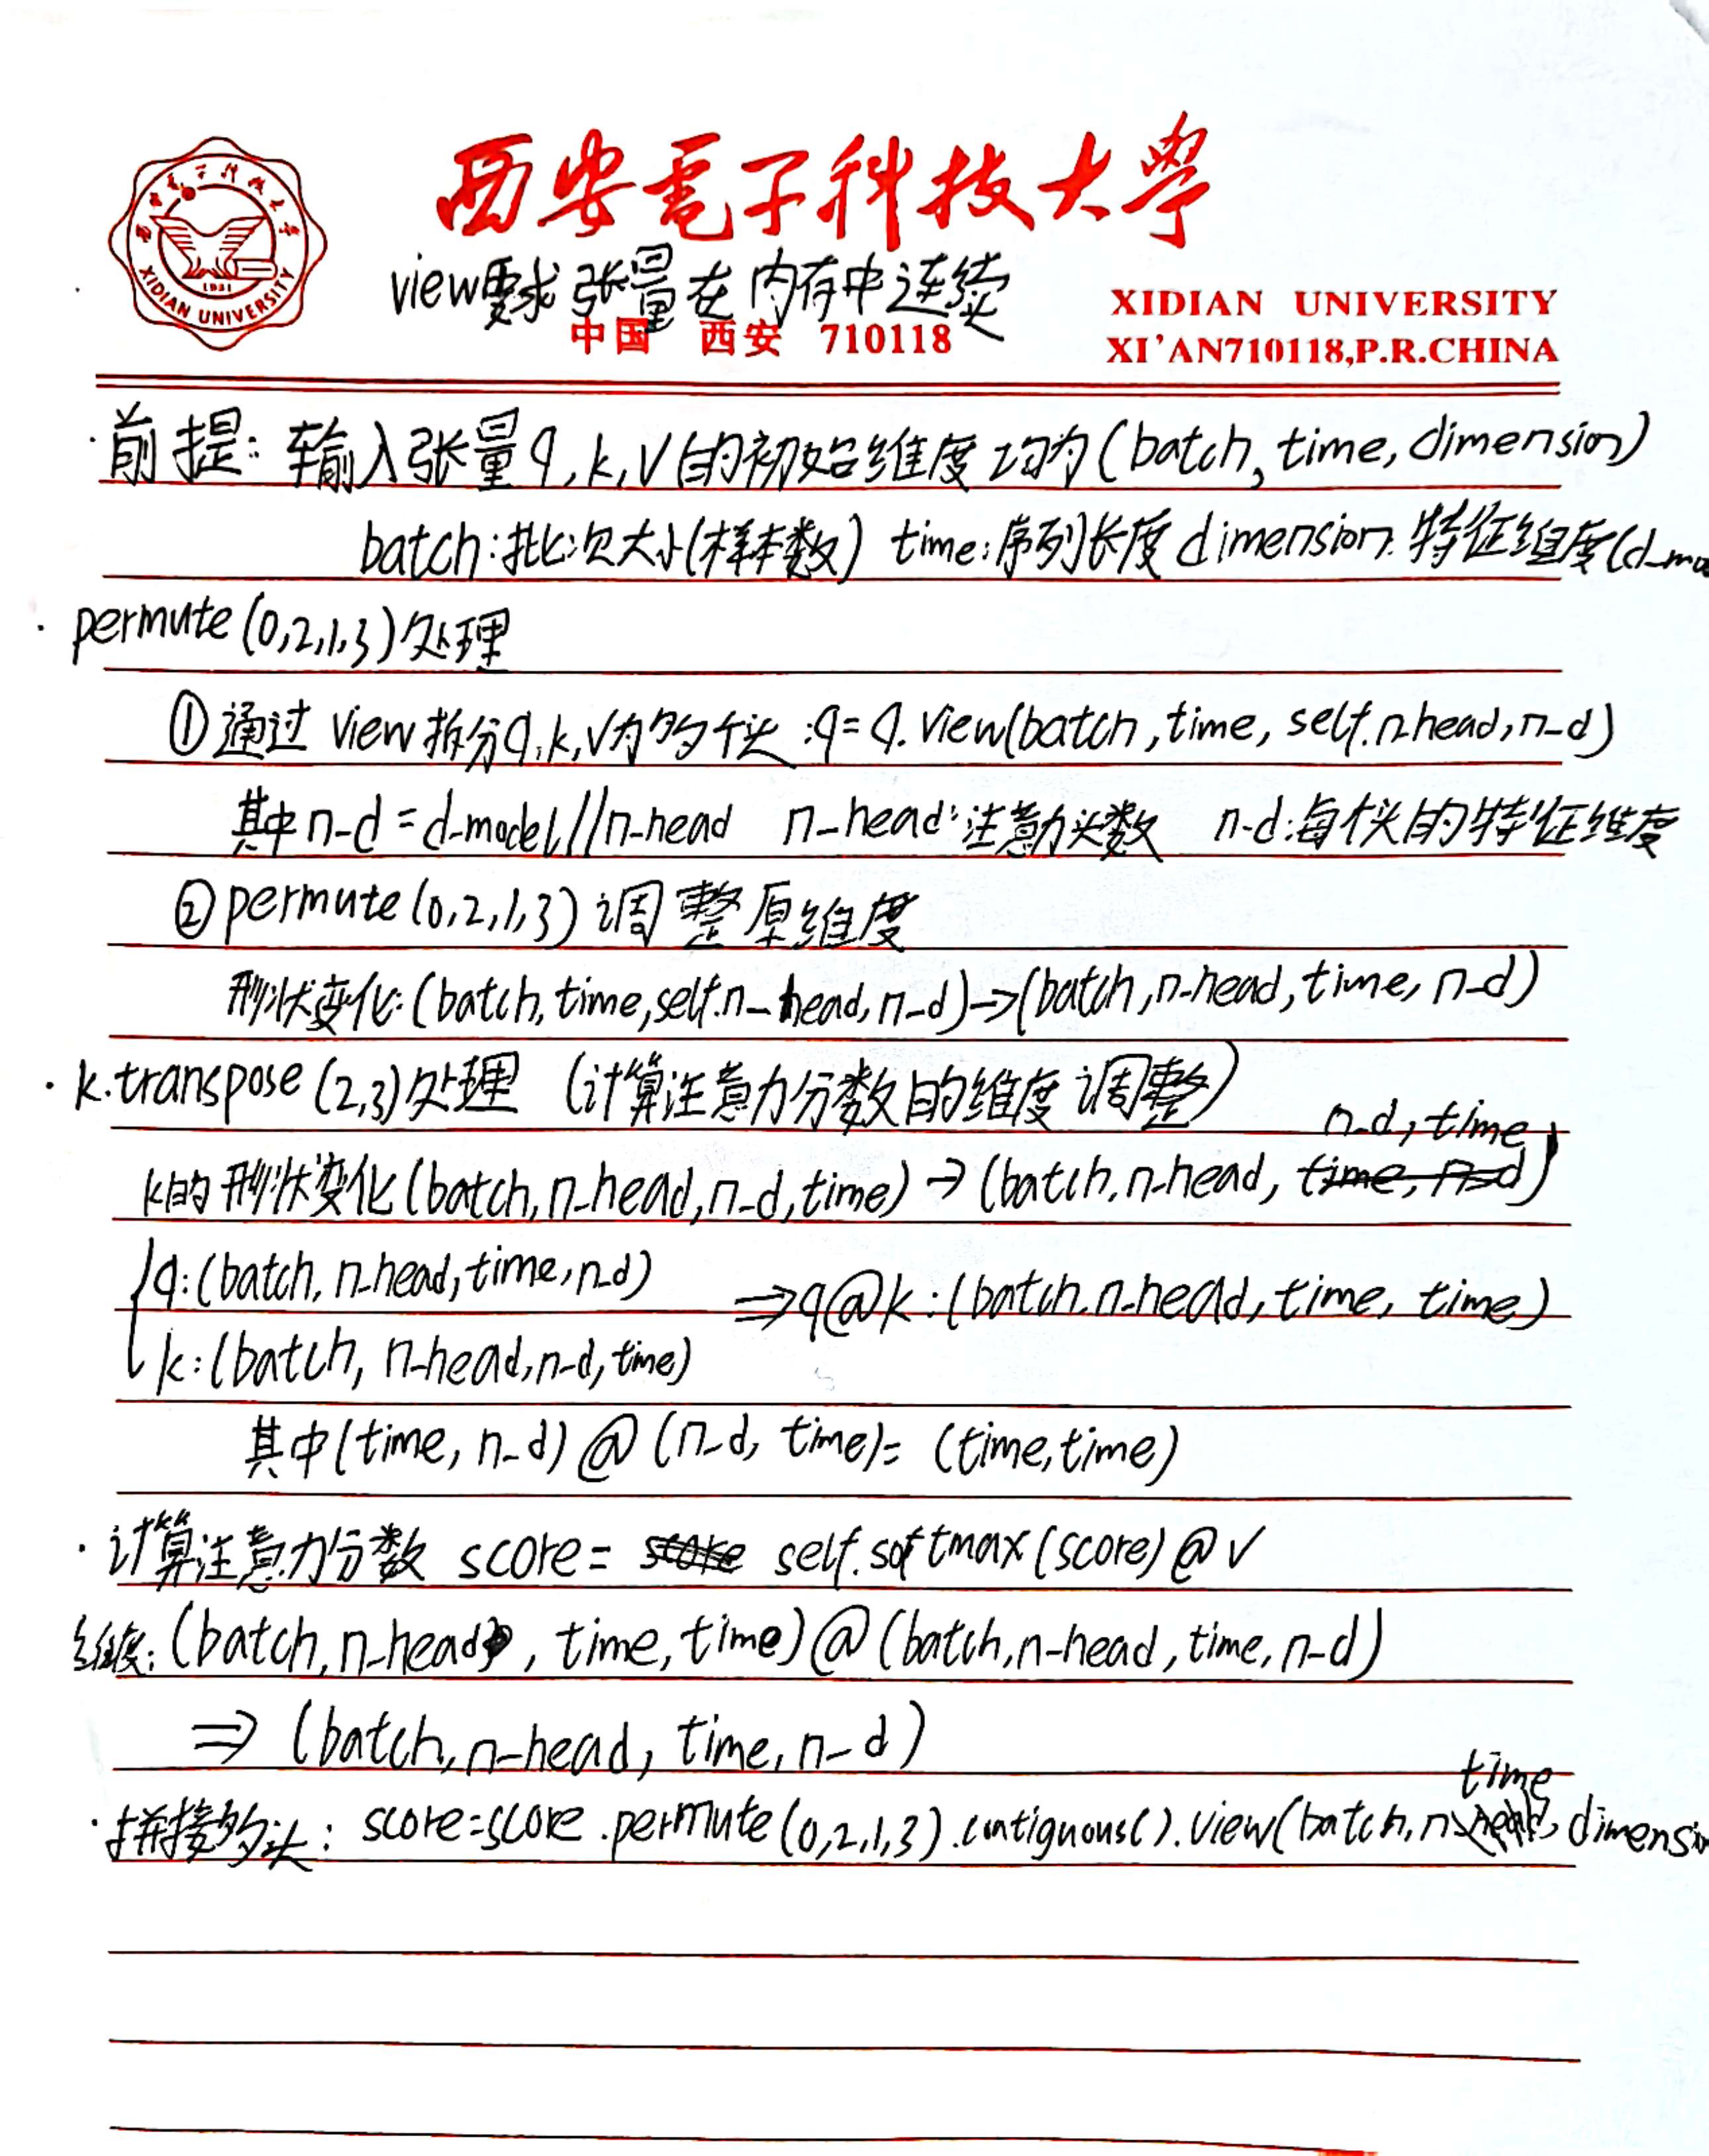 西安電子科技大學
XIDIAN UNIVERSITY
1931
view要求张量在内存中连续
中国 西安 710118
XIDIAN UNIVERSITY
XI'AN710118,P.R.CHINA
·前提: 输入张量q,k,v的初始维度均为(batch, time, dimension)
batch:批次大小(样本数) time:序列长度 dimension:特征维度(d_mo
· permute(0,2,1,3)处理
①通过view拆分q,k,v为多个头:q=q.view(batch,time, self.n_head,n_d)
其中n_d=d_model//n_head n_head:注意力头数 n_d:每个头的特征维度
②permute(0,2,1,3)调整原维度
形状变化:(batch,time,self.n_head,n_d)→(batch,n_head,time,n_d)
· k.transpose(2,3)处理 (计算注意力分数的维度调整)
n_d,time)
k的形状变化(batch,n_head,n_d,time)→(batch,n_head, time, n_d)
q:(batch,n_head,time,n_d)
⇒q@k:(batch,n_head,time,time)
k:(batch, n_head,n_d,time)
其中(time,n_d)@(n_d, time)=(time,time)
·计算注意力分数 score= score self.softmax(score)@v
维度:(batch,n_head, time,time)@(batch,n_head,time,n_d)
⇒(batch,n_head,time,n_d)
time
·拼接多头: score=score.permute(0,2,1,3).contiguous().view(batch,n_head,dimensio